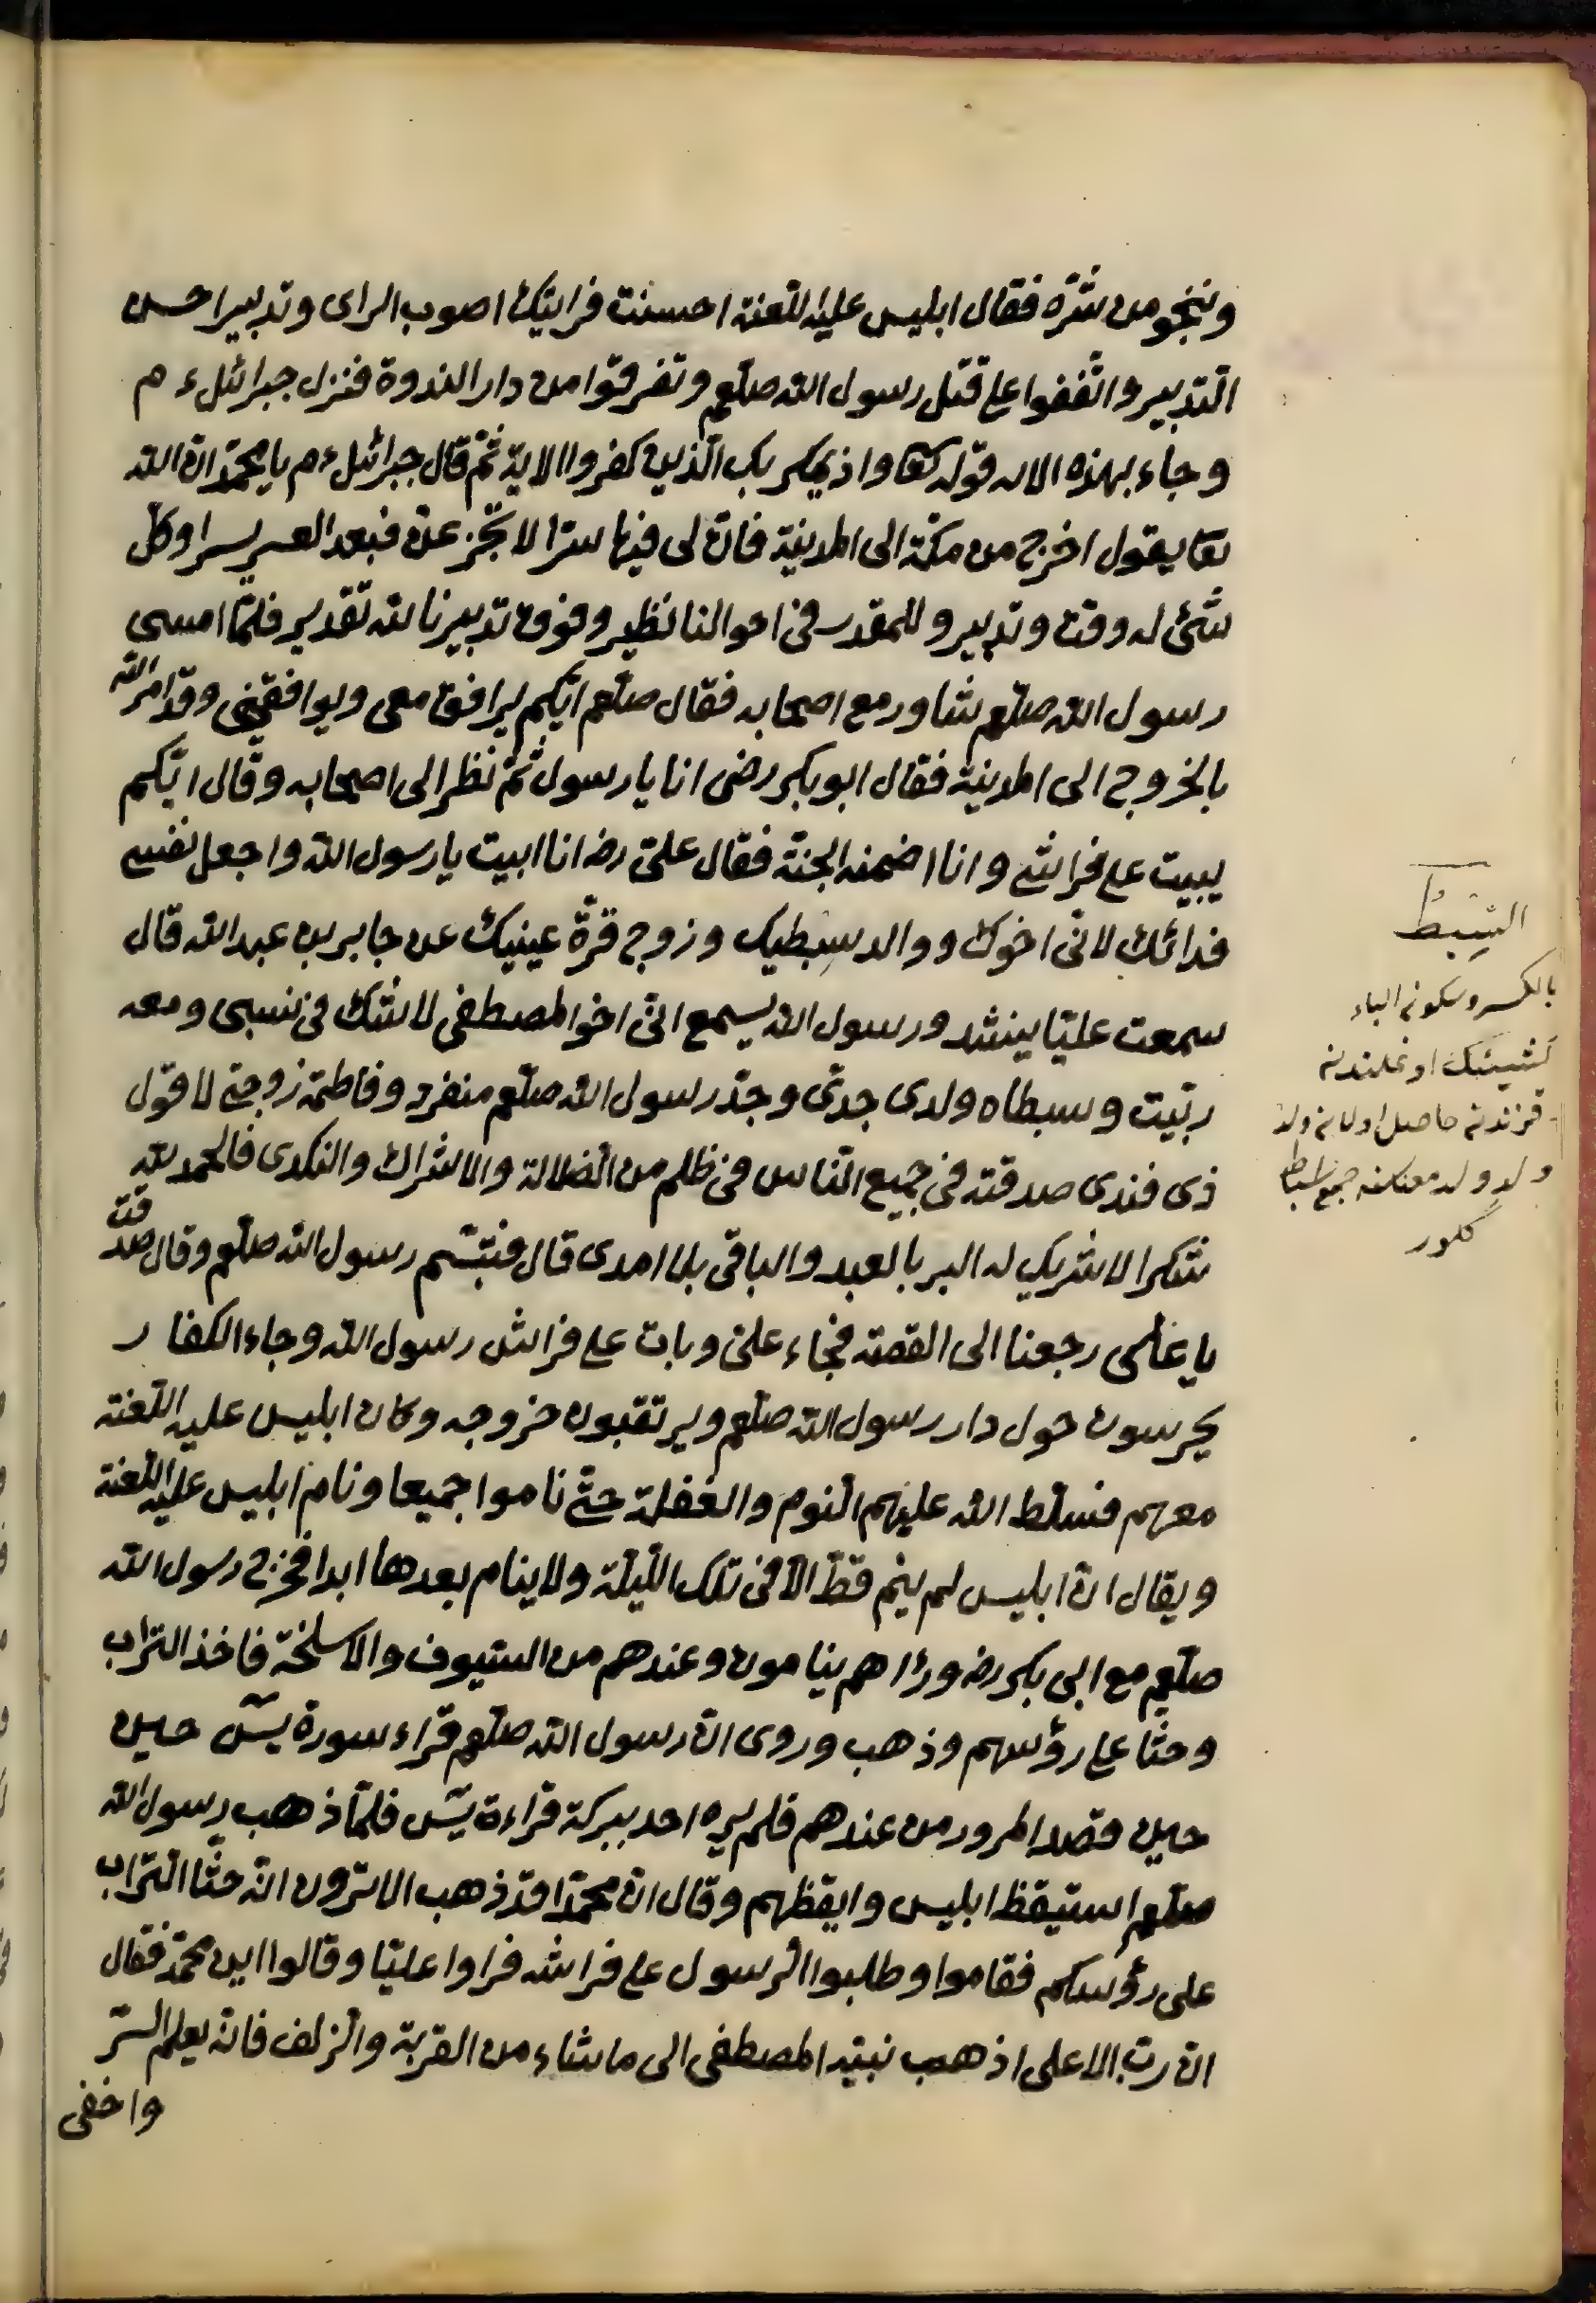 وننجو من شرّه فقال ابليس عليه اللّعنة احسنت فرايتك اصوب الراى وتدبيرا حسن
التدبير واتّفقوا على قتل رسول الله صلّعم وتفرقوا من دار الندوة فنزل جبرائيل ءم
وجاء بهذه الايه قوله تعا واذ يمكر بك الّذين كفروا الاية ثمّ قال جبرائيل ءم يا محمّد انّ الله
تعا يقول اخرج من مكّة الى المدينة فانّ لى فيها سرّا لا تجزعنّ فبعد العسر يسرا وكلّ
شئ له وقت وتدبير وللمقدر فى احوالنا نظير وفوق تدبيرنا لله تقدير فلمّا امسى
رسول الله صلّعم شاور مع اصحابه فقال صلّعم ايّكم يرافق معى ويوافقنى وقد امر الله
بالخروج الى المدينة فقال ابو بكر رضى انا يا رسول ثمّ نظر الى اصحابه وقال ايّكم
يبيت على فراشى وانا اضمنه الجنّة فقال علىّ رضه انا ابيت يا رسول الله واجعل نفسى
فدائك لانّى اخوك ووالد سبطيك وزوج قرّة عينيك عن جابر بن عبد الله قال
سمعت عليّا ينشد ورسول الله يسمع انّى اخو المصطفى لا شكّ فى نسبى ومعه
ربّيت وسبطاه ولدى جدّى وجدّ رسول الله صلّعم منفرد وفاطمة زوجتى لا قول
ذى فندى صدقته فى جميع النّاس فى ظلم من الضلالة والاشراك والنكدى فالحمد لله
شكرا لا شريك له البر بالعبد والباقى بلا امدى قال فتبسّم رسول الله صلّعم وقال صدقت
يا على رجعنا الى القصّة فجاء علىّ وبات على فراش رسول الله وجاء الكفار
يحرسون حول دار رسول الله صلّعم ويرتقبون خروجه وكان ابليس عليه اللّعنة
معهم فسلّط الله عليهم النّوم والغفلة حتّى ناموا جميعا ونام ابليس عليه اللّعنة
ويقال انّ ابليس لم ينم قطّ الّا فى تلك اللّيلة ولا ينام بعدها ابدا فخرج رسول الله
صلّعم مع ابى بكر رضه ورٱهم ينامون وعندهم من السّيوف والاسلحة فاخذ التراب
وحثا على رؤسهم وذهب وروى انّ رسول الله صلّعم قراء سورة يسۤ حين
حين قصد المرور من عندهم فلم يره احد ببركة قراءة يسۤ فلمّا ذهب رسول الله
صلّعم استيقظ ابليس وايقظهم وقال انّ محمّدا قد ذهب الا ترون انّه حثّا التّراب
على رؤسكم فقاموا وطلبوا الرّسول على فراشه فراوا عليّا وقالوا اين محمّد فقال
انّ ربّ الاعلى اذهب نبيّه المصطفى الى ما شاء من القربة والزّلف فانّه يعلم السّرّ
واخفى
السِبْطُ
بالكسر وسكون الباء
كشينك اوغلندن
قزندن حاصل اولان ولد
ولدِ ولد معناسنه جمع اسباط
كلور